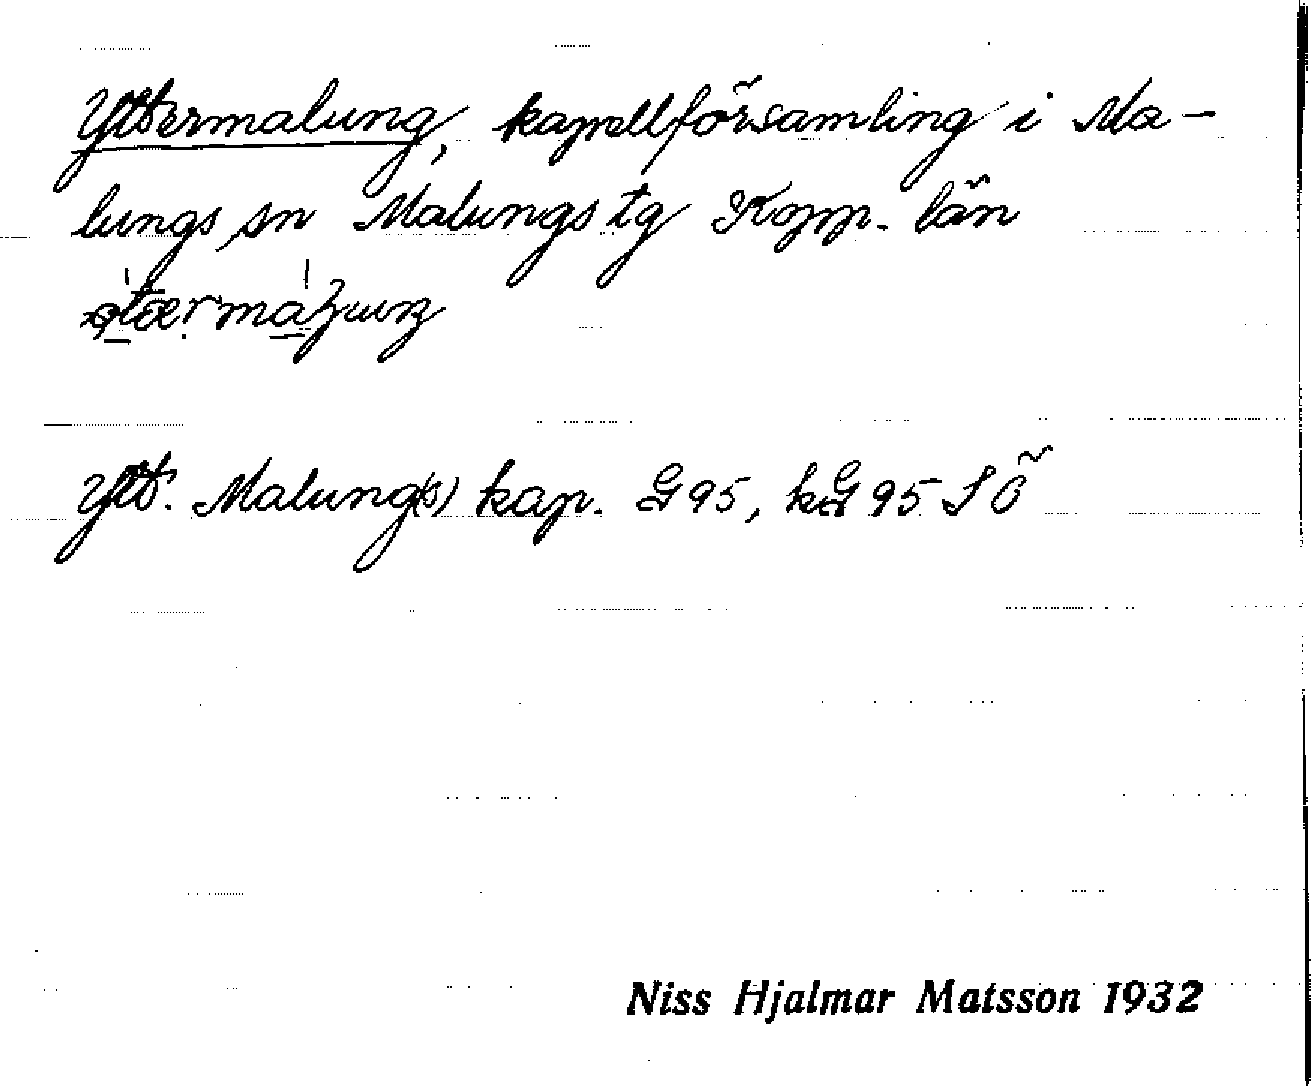 Yttermalung, kapellförsamling i Ma-
lungs sn Malungs tg Kopp. län
Ytt. Malung(s) kap. G95, kG95 S Ö
Niss Hjalmar Matsson 1932